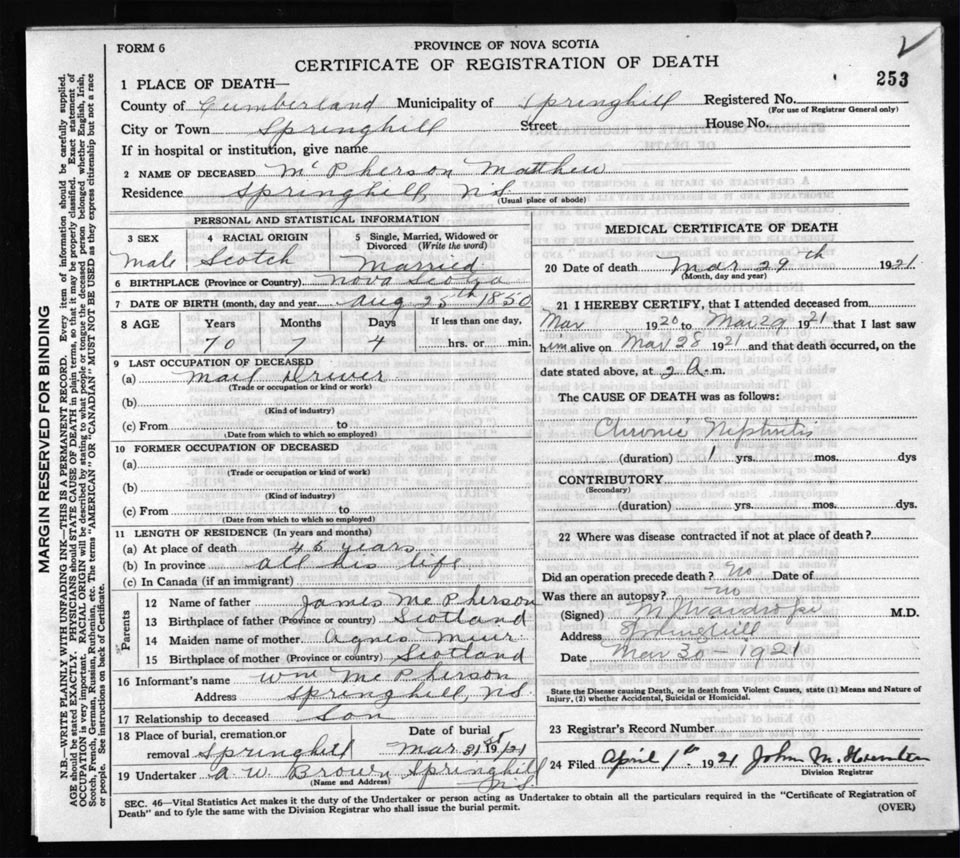 FORM 6
PROVINCE OF NOVA SCOTIA
CERTIFICATE OF REGISTRATION OF DEATH
253
1 PLACE OF DEATH—
County of Cumberland Municipality of Springhill Registered No.
(For use of Registrar General only)
City or Town Springhill Street House No.
If in hospital or institution, give name
2 NAME OF DECEASED McPherson Matthew
Residence Springhill, N.S.
(Usual place of abode)
PERSONAL AND STATISTICAL INFORMATION
3 SEX Male
4 RACIAL ORIGIN Scotch
5 Single, Married, Widowed or Divorced (Write the word) Married
6 BIRTHPLACE (Province or Country) Nova Scotia
7 DATE OF BIRTH (month, day and year) Aug 25th 1850
8 AGE Years Months Days If less than one day,
70 7 4 hrs. or min.
9 LAST OCCUPATION OF DECEASED
(a) Mail Driver
(Trade or occupation or kind or work)
(b)
(Kind of industry)
(c) From to
(Date from which to which so employed)
10 FORMER OCCUPATION OF DECEASED
(a)
(Trade or occupation or kind of work)
(b)
(Kind of industry)
(c) From to
(Date from which to which so employed)
11 LENGTH OF RESIDENCE (In years and months)
(a) At place of death 45 years
(b) In province all his life
(c) In Canada (if an immigrant)
Parents
12 Name of father James McPherson
13 Birthplace of father (Province or country) Scotland
14 Maiden name of mother Agnes Muir
15 Birthplace of mother (Province or country) Scotland
16 Informant's name Wm McPherson
Address Springhill, N.S.
17 Relationship to deceased Son
18 Place of burial, cremation, or Date of burial
removal Springhill Mar 31st 1921
19 Undertaker A. W. Brown Springhill
(Name and Address) N.S.
MEDICAL CERTIFICATE OF DEATH
20 Date of death Mar 29th 1921
(Month, day and year)
21 I HEREBY CERTIFY, that I attended deceased from
Mar 1920 to Mar 29 1921 that I last saw
him alive on Mar 28 1921 and that death occurred, on the
date stated above, at 2 A.m.
The CAUSE OF DEATH was as follows:
Chronic Nephritis
(duration) 1 yrs. mos. dys
CONTRIBUTORY
(Secondary)
(duration) yrs. mos. dys.
22 Where was disease contracted if not at place of death?
Did an operation precede death? no Date of
Was there an autopsy? no
(Signed) M.D.
Address Springhill
Date Mar 30 - 1921
State the Disease causing Death, or in death from Violent Causes, state (1) Means and Nature of
Injury, (2) whether Accidental, Suicidal or Homicidal.
23 Registrar's Record Number
24 Filed April 1st 1921 John M.
Division Registrar
SEC. 46—Vital Statistics Act makes it the duty of the Undertaker or person acting as Undertaker to obtain all the particulars required in the "Certificate of Registration of
Death" and to fyle the same with the Division Registrar who shall issue the burial permit. (OVER)
MARGIN RESERVED FOR BINDING
N.B.—WRITE PLAINLY WITH UNFADING INK—THIS IS A PERMANENT RECORD. Every item of information should be carefully supplied.
AGE should be stated EXACTLY. PHYSICIANS should STATE CAUSE OF DEATH in plain terms, so that it may be properly classified. Exact statement of
OCCUPATION is very important. RACIAL ORIGIN will be described by stating to what people or tongue the deceased person belonged, whether English, Irish,
Scotch, French, German, Russian, Ruthenian, etc. The terms "AMERICAN" OR "CANADIAN" MUST NOT BE USED as they express citizenship but not a race
or people. See instructions on back of Certificate.